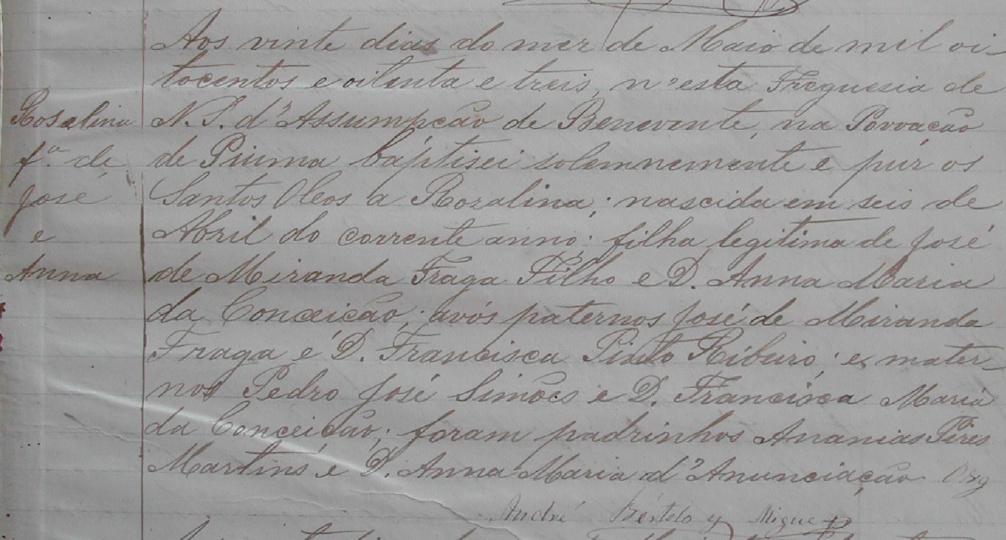 Rosalina
fª. de
José
e
Anna
Aos vinte dias do mez de Maio de mil oi-
tocentos e oitenta e treis, n'esta Freguesia de
N. S. d'Assumpcão de Benevente, na Povoacão
de Piuma baptisei solemnemente e púr os
Santos Oleos a Rozalina; nascida em seis de
Abril do corrente anno: filha legitima de José
de Miranda Fraga Filho e D. Anna Maria
da Conceicão; avós paternos José de Miranda
Fraga e D. Francisca Pinto Ribeiro; e mater-
nos Pedro José Simões e D. Francisca Maria
da Conceicão; foram padrinhos Ananias Pires
Martins e D. Anna Maria d'Anunciação
André